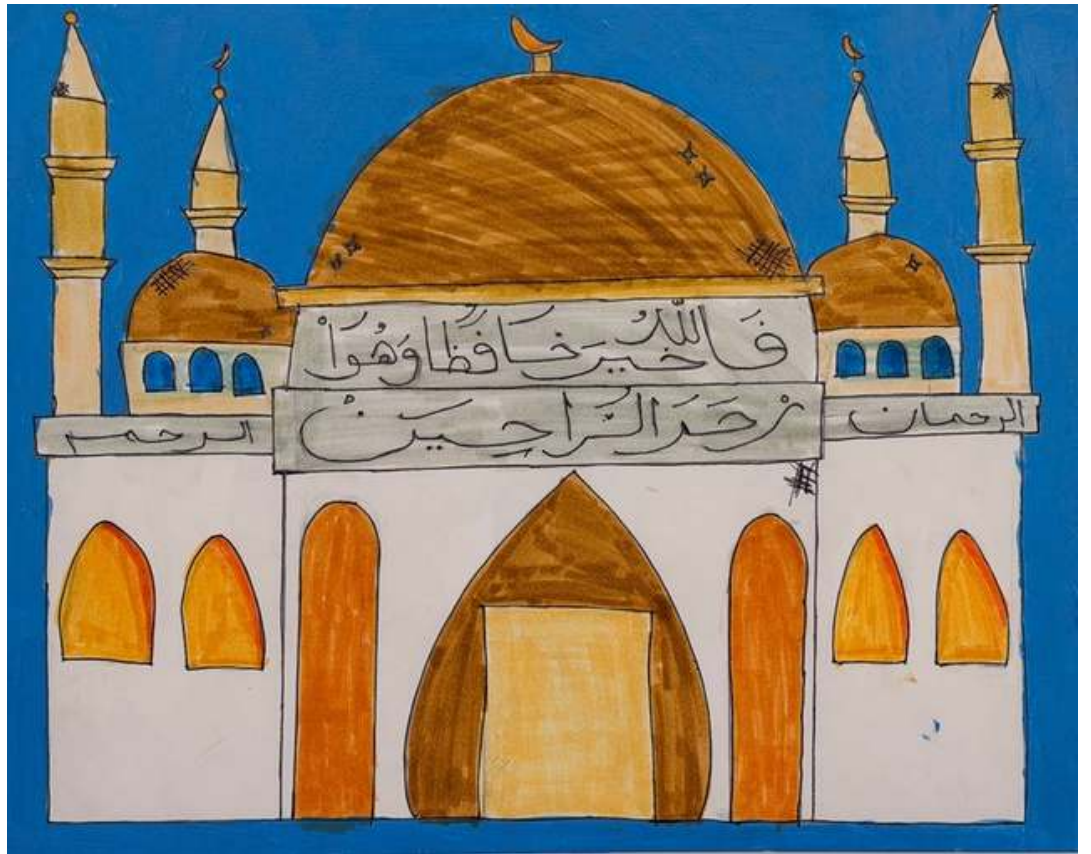 فَاللّهُ خيرَ حَافظَا وَهُوَاْ
رْحَمَ الرَّاحِمِينْ
الرحمان
الرحيم